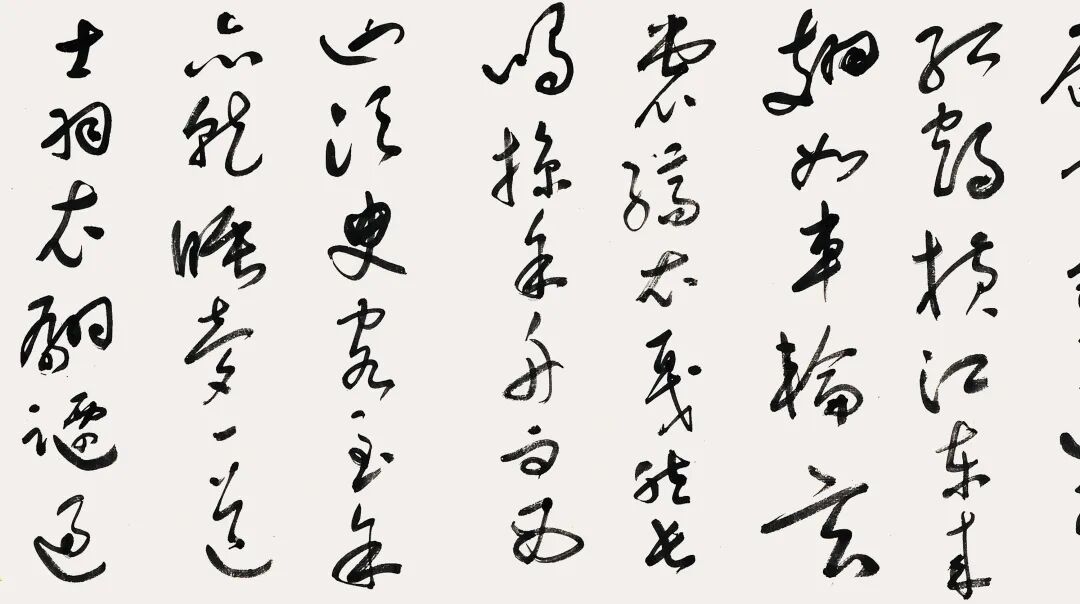 孤鶴橫江東來
翅如車輪玄
裳縞衣戛然長
鳴掠余舟而西
也須臾客去余
亦就睡夢一道
士羽衣翩躚過